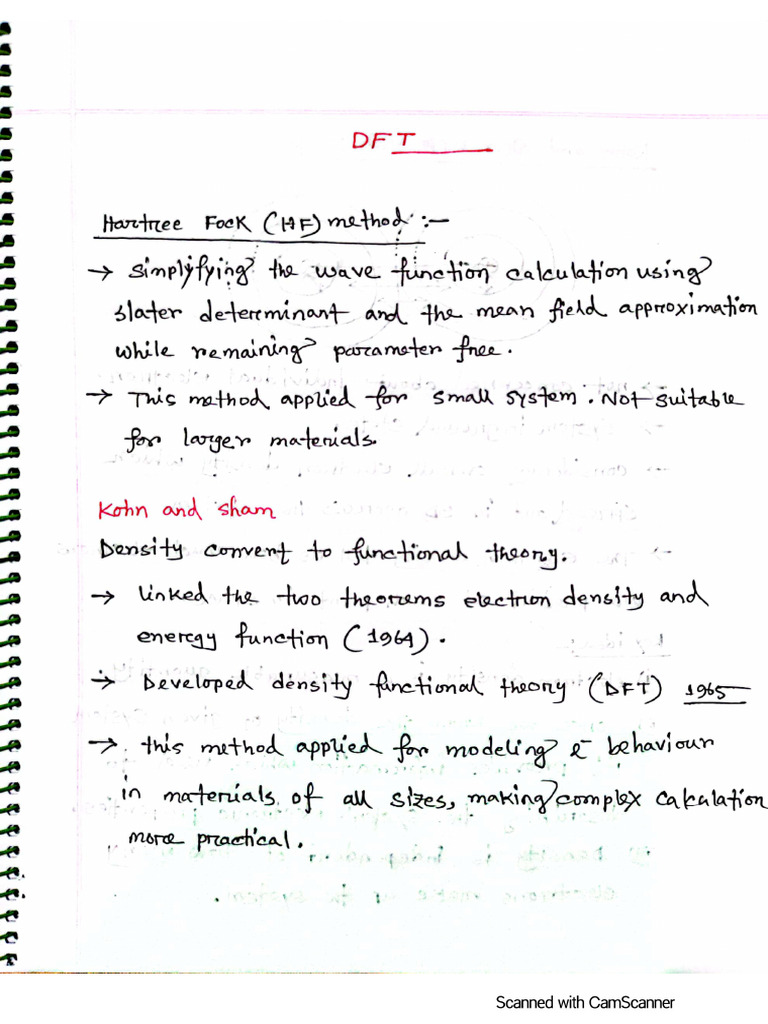 DFT
Hartree Fock (HF) method :-
→ simplyfying the wave function calculation using
slater determinant and the mean field approximation
while remaining parameter free.
→ This method applied for small system. Not suitable
for larger materials.
Kohn and sham
Density convert to functional theory.
→ linked the two theorems electron density and
energy function (1964).
→ Developed density functional theory (DFT) 1965
→ this method applied for modeling e⁻ behaviour
in materials of all sizes, making complex calculation
more practical.
Scanned with CamScanner